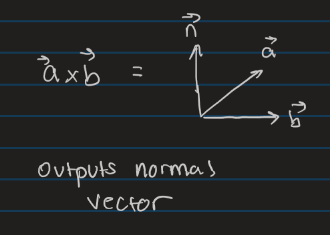 n⃗
a⃗
a⃗ x b⃗ =
b⃗
outputs normal
vector